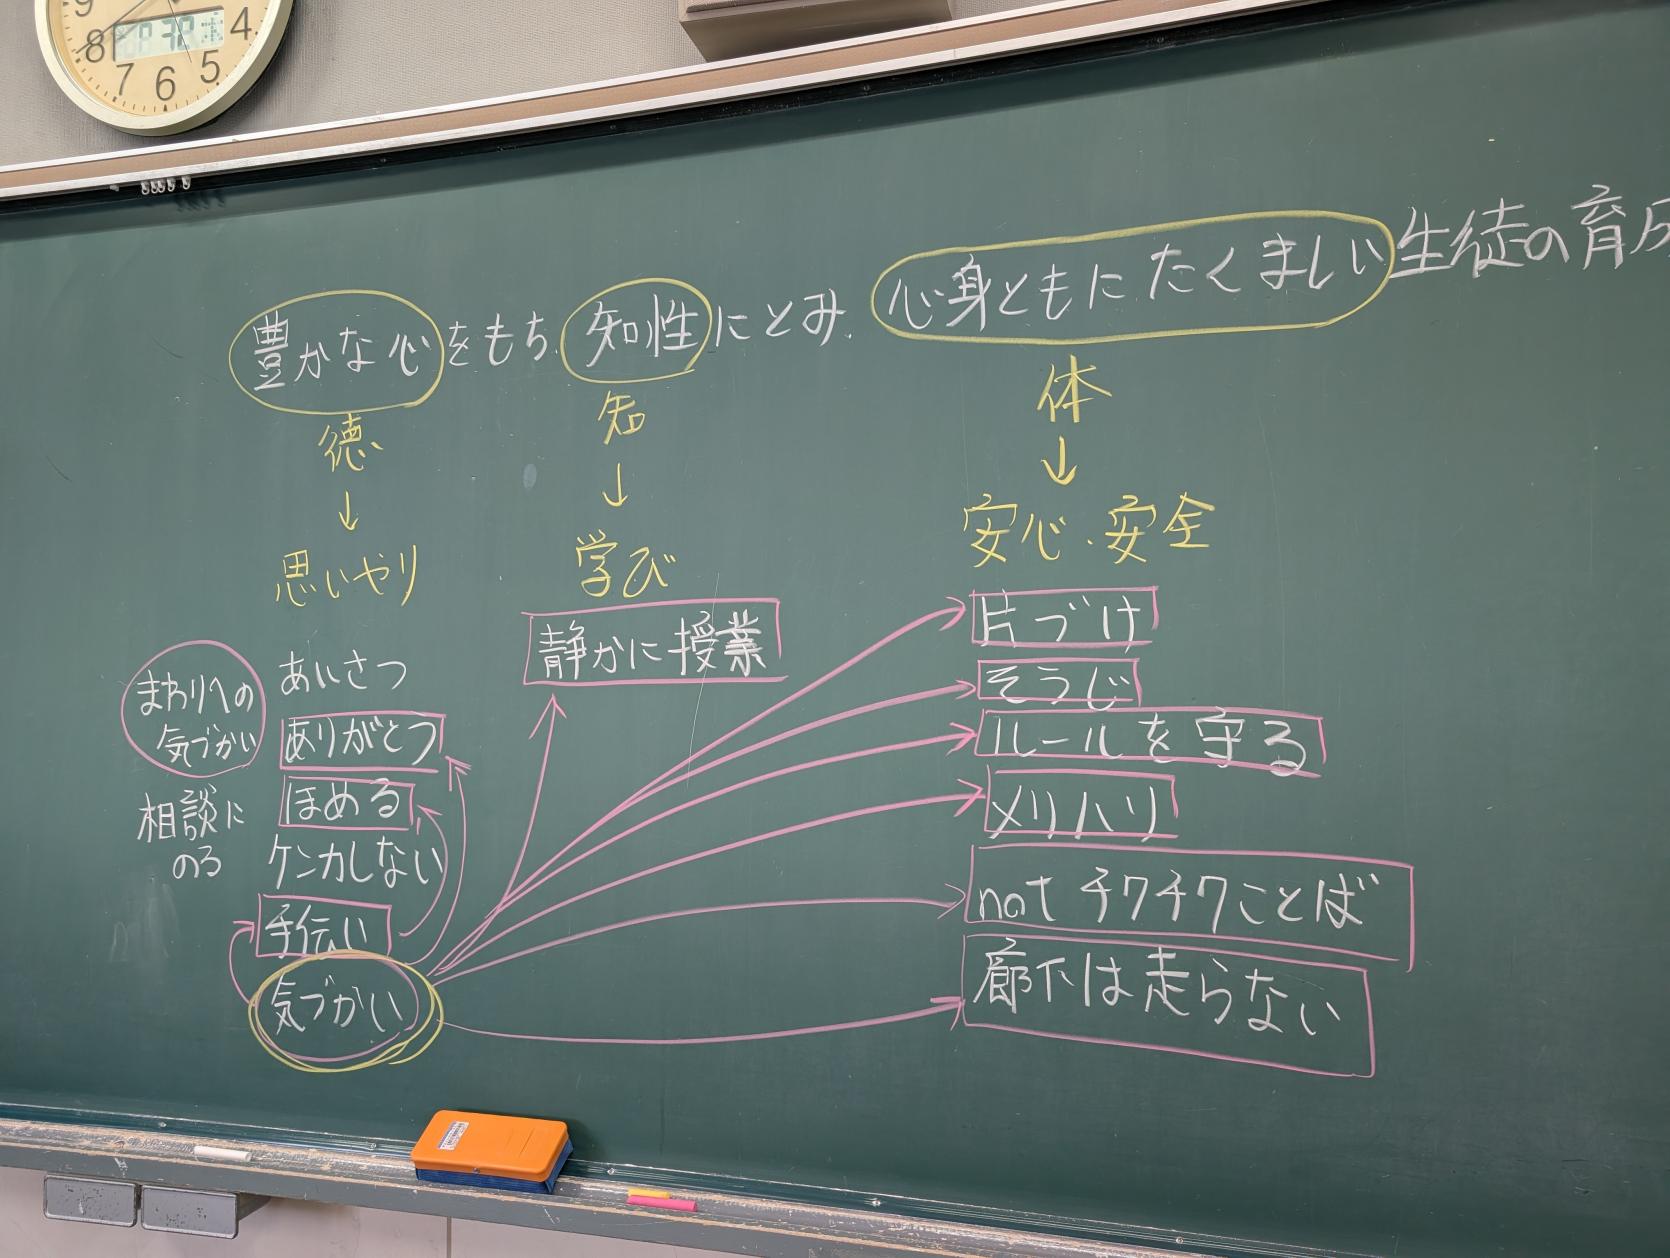 豊かな心をもち、知性にとみ、心身ともにたくましい生徒の育成
徳
↓
思いやり
知
↓
学び
体
↓
安心・安全
まわりへの
気づかい
相談に
のる
あいさつ
ありがとう
ほめる
ケンカしない
手伝い
気づかい
静かに授業
片づけ
そうじ
ルールを守る
メリハリ
not チクチクことば
廊下は走らない
8
7
6
5
4